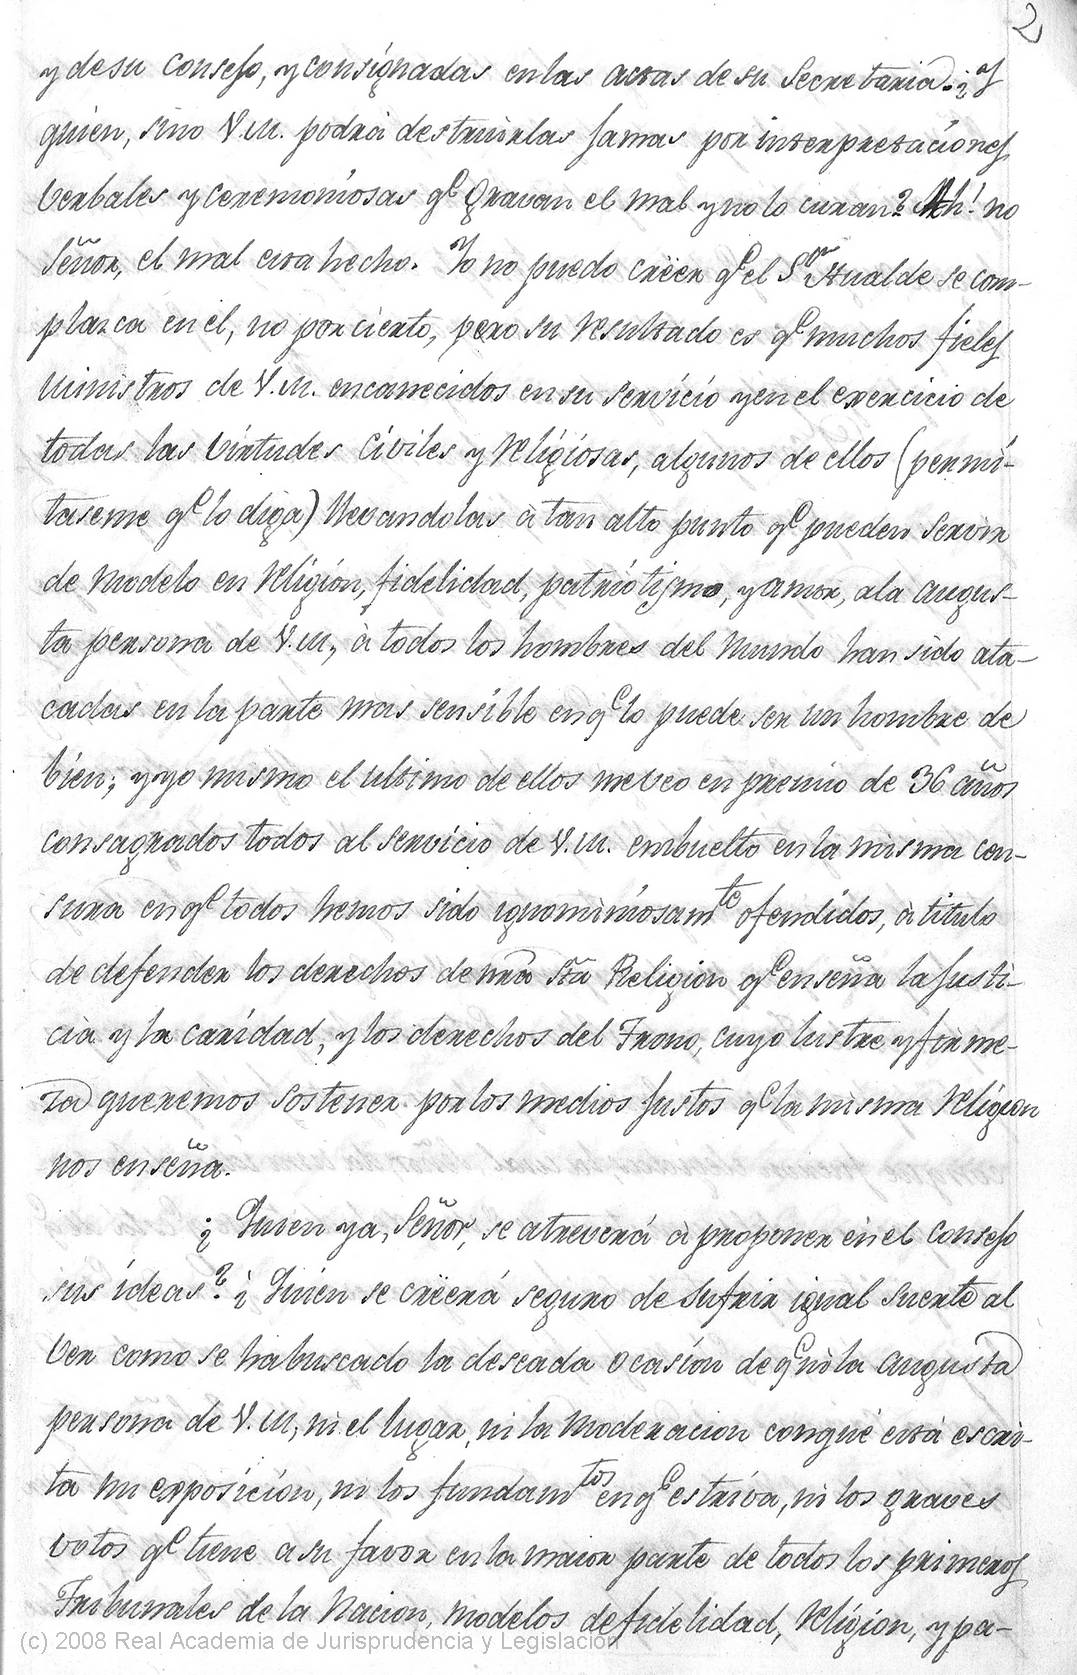 2
y de su Consejo, y consignadas en las actas de su Secretaria. ¿y
quien, sino V.M. podrá destruirlas jamas por interpretaciones
verbales y ceremoniosas q.e gravan el mal y no lo curan? Ah! no
Señor, el mal esta hecho. Yo no puedo crëer q.e el S.or Hualde se com-
plazca en él, no por cierto, pero su resultado es q.e muchos fieles
Ministros de V.M. encanecidos en su servicio y en el exercicio de
todas las virtudes civiles y religiosas, algunos de ellos (permi-
taseme q.e lo diga) llevandolas à tan alto punto q.e pueden servir
de modelo en religion, fidelidad, patriotismo, y amor, a la augus-
ta persona de V.M., à todos los hombres del mundo han sido ata-
cadas en la parte mas sensible en q.e lo puede ser un hombre de
bien; y yo mismo el ultimo de ellos me veo en premio de 36 años
consagrados todos al servicio de V.M. embuelto en la misma cen-
sura en q.e todos hemos sido ignominiosam.te ofendidos, à titulo
de defender los derechos de nrã Stã Religion q.e enseña la justi-
cia y la caridad, y los derechos del Trono, cuyo lustre y firme-
za queremos sostener por los medios justos q.e la misma religion
nos enseña.
¿Quien ya, Señor, se atreverá à proponer en el Consejo
sus ideas? ¿Quien se crëerá seguro de sufrir igual suerte al
ver como se ha buscado la deseada ocasion de q.e ni la augusta
persona de V.M, ni el lugar, ni la moderacion conque está escri-
ta mi exposicion, ni los fundam.tos en q.e estriva, ni los graves
votos q.e tiene a su favor en la maior parte de todos los primeros
Tribunales de la Nacion, modelos de fidelidad, religion, y pa-
(c) 2008 Real Academia de Jurisprudencia y Legislación